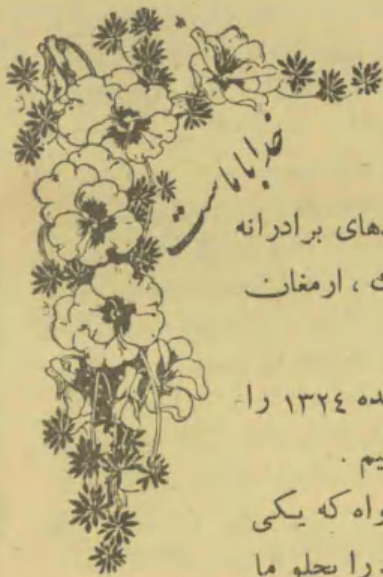 خدا با ماست
دهای برادرانه
، ارمغان
ده ۱۳۲٤ را
یم .
واه که یکی
را بجلو ما